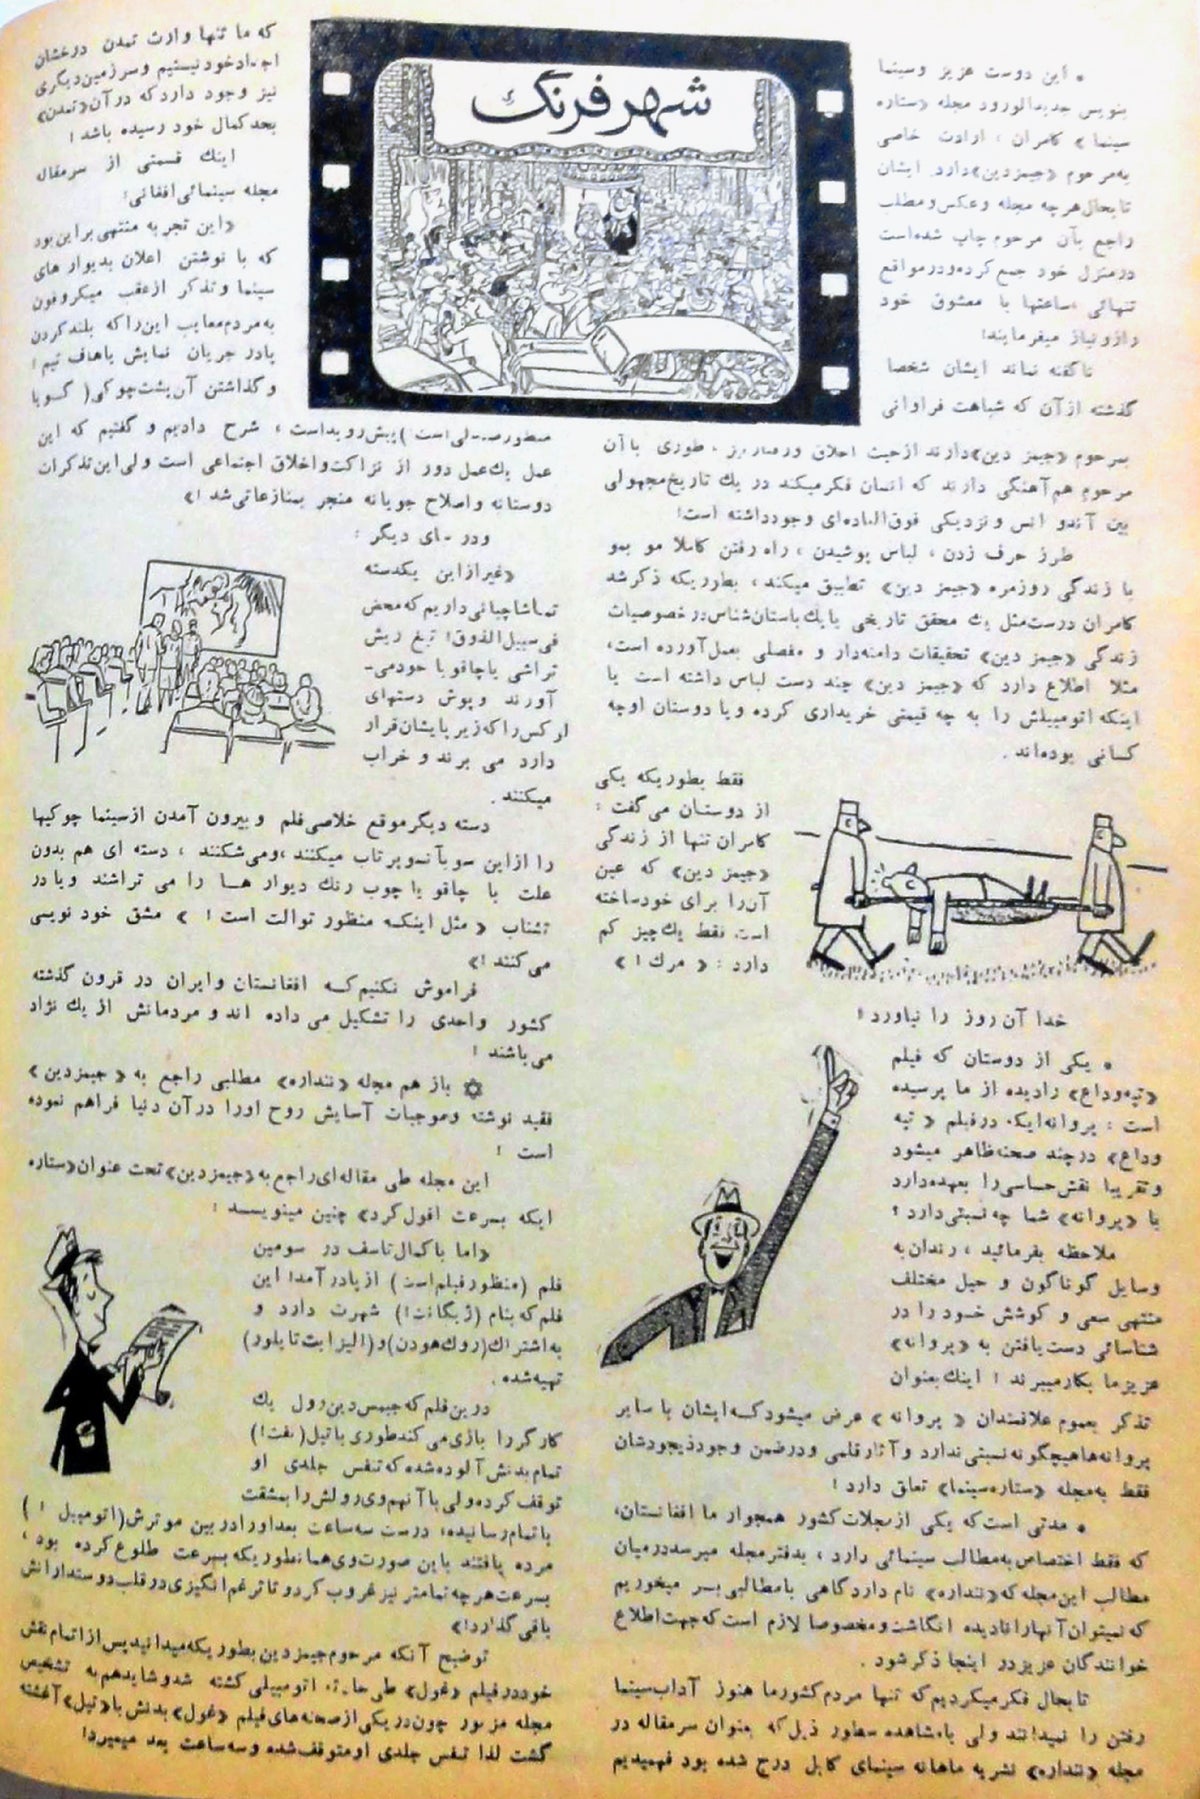 شهر فرنگ
• این دوست عزیز و سینما
بنویس جدیدالورود مجله «ستاره
سینما» کامران ، ارادت خاصی
به مرحوم «جیمزدین» دارد. ایشان
تا بحال هر چه مجله و عکس و مطلب
راجع بآن مرحوم چاپ شده است
در منزل خود جمع کرده و در مواقع
تنهائی ، ساعتها با معشوق خود
راز و نیاز میفرمایند!
ناگفته نماند ایشان شخصا
گذشته از آن که شباهت فراوانی
بمرحوم «جیمز دین» دارند از حیث اخلاق و رفتار نیز ، طوری با آن
مرحوم هم آهنگی دارند که انسان فکر میکند در یك تاریخ مجهولی
بین آندو انس و نزدیکی فوق العاده ای وجود داشته است!
طرز حرف زدن ، لباس پوشیدن ، راه رفتن کاملا مو بمو
با زندگی روزمره «جیمز دین» تطبیق میکند ، بطوریکه ذکر شد
کامران درست مثل یك محقق تاریخی یا یك باستان شناس در خصوصیات
زندگی «جیمز دین» تحقیقات دامنه دار و مفصلی بعمل آورده است،
مثلا اطلاع دارد که «جیمز دین» چند دست لباس داشته است یا
اینکه اتومبیلش را به چه قیمتی خریداری کرده و یا دوستان او چه
کسانی بوده اند .
فقط بطوریکه یکی
از دوستان می گفت :
کامران تنها از زندگی
«جیمز دین» که عین
آن را برای خود ساخته
است فقط یك چیز کم
دارد : « مرك ! »
خدا آن روز را نیاورد !
• یکی از دوستان که فیلم
«تپه وداع» را دیده از ما پرسیده
است : پروانه ایکه در فیلم « تپه
وداع» در چند صحنه ظاهر میشود
و تقریبا نقش حساسی را بعهده دارد
با «پروانه» شما چه نسبتی دارد ؟
ملاحظه بفرمائید ، رندان به
وسایل گوناگون و حیل مختلف
منتهی سعی و کوشش خود را در
شناسائی دست یافتن به «پروانه»
عزیز ما بکار میبرند ! اینك بعنوان
تذکر بعموم علاقمندان « پروانه » عرض میشود که ایشان با سایر
پروانه ها هیچگونه نسبتی ندارد و آثار قلمی و در ضمن وجود ذیجودشان
فقط به مجله «ستاره سینما» تعلق دارد !
• مدتی است که یکی از مجلات کشور همجوار ما افغانستان،
که فقط اختصاص به مطالب سینمائی دارد ، بدفتر مجله میرسد در میان
مطالب این مجله که «ننداره» نام دارد گاهی با مطالبی بر میخوریم
که نمیتوان آنها را نادیده انگاشت و مخصوصا لازم است که جهت اطلاع
خوانندگان عزیز در اینجا ذکر شود .
تا بحال فکر میکردیم که تنها مردم کشور ما هنوز آداب سینما
رفتن را نمیدانند ولی با مشاهده سطور ذیل که بعنوان سرمقاله در
مجله «ننداره» نشریه ماهانه سینمای کابل درج شده بود فهمیدیم
که ما تنها وارث تمدن درخشان
اجداد خود نیستیم و سرزمین دیگری
نیز وجود دارد که در آن «تمدن»
بحد کمال خود رسیده باشد !
اینك قسمتی از سرمقاله
مجله سینمائی افغانی:
«این تجربه منتهی بر این بود
که با نوشتن اعلان بدیوار های
سینما و تذکر از عقب میکروفون
به مردم معایب این را که بلند کردن
پا در جریان نمایش یا هاف تیم !
و گذاشتن آن پشت چوکی ( گویا
منظور صندلی است ) پیش رو بد است ، شرح دادیم و گفتیم که این
عمل یك عمل دور از نزاکت و اخلاق اجتماعی است ولی این تذکرات
دوستانه و اصلاح جویانه منجر بمنازعاتی شد !»
و در جای دیگر :
«غیر از این یکدسته
تماشاچیانی داریم که محض
فی سبیل الذوق ! تیغ ریش
تراشی یا چاقو با خود می-
آورند و پوش دستهای
او کس را که زیر پایشان قرار
دارد می برند و خراب
میکنند .
دسته دیگر موقع خلاصی فلم و بیرون آمدن از سینما چوکیها
را از این سو بآنسو پرتاب میکنند ، و می شکنند ، دسته ای هم بدون
علت با چاقو یا چوب رنك دیوار ها را می تراشند و یا در
تشناب « مثل اینکه منظور توالت است ! » مشق خود نویسی
می کنند !»
فراموش نکنیم که افغانستان و ایران در قرون گذشته
کشور واحدی را تشکیل می داده اند و مردمانش از یك نژاد
می باشند !
✡ باز هم مجله «ننداره» مطلبی راجع به « جیمزدین »
فقید نوشته و موجبات آسایش روح او را در آن دنیا فراهم نموده
است !
این مجله طی مقاله ای راجع به «جیمزدین» تحت عنوان «ستاره
ایکه بسرعت افول کرد» چنین مینویسد :
«اما با کمال تاسف در سومین
فلم (منظور فیلم است) از پا در آمد! این
فلم که بنام (ژیگانت!) شهرت دارد و
به اشتراك (روك هودن) و (الیزابت تایلور)
تهیه شده .
در ین فلم که جیمس دین رول یك
کارگر را بازی می کند طوری با تیل (نفت!)
تمام بدنش آلوده شده که تنفس جلدی او
توقف کرده ولی با آنهم وی رولش را بمشقت
با تمام رسانیده، درست سه ساعت بعد او را در بین موترش (اتومبیل ! )
مرده یافتند باین صورت وی همانطوریکه بسرعت طلوع کرده بود ،
بسرعت هر چه تمامتر نیز غروب کرد و تاثر غم انگیزی در قلب دوستدارانش
باقی گذارد!»
توضیح آنکه مرحوم جیمزدین بطوریکه میدانید پس از اتمام نقش
خود در فیلم «غول» طی حادثه اتومبیلی کشته شد و شاید هم به تشخیص
مجله مزبور چون در یکی از صحنه های فیلم «غول» بدنش با «تیل» آغشته
گشت لذا تنفس جلدی او متوقف شده و سه ساعت بعد میمیرد!